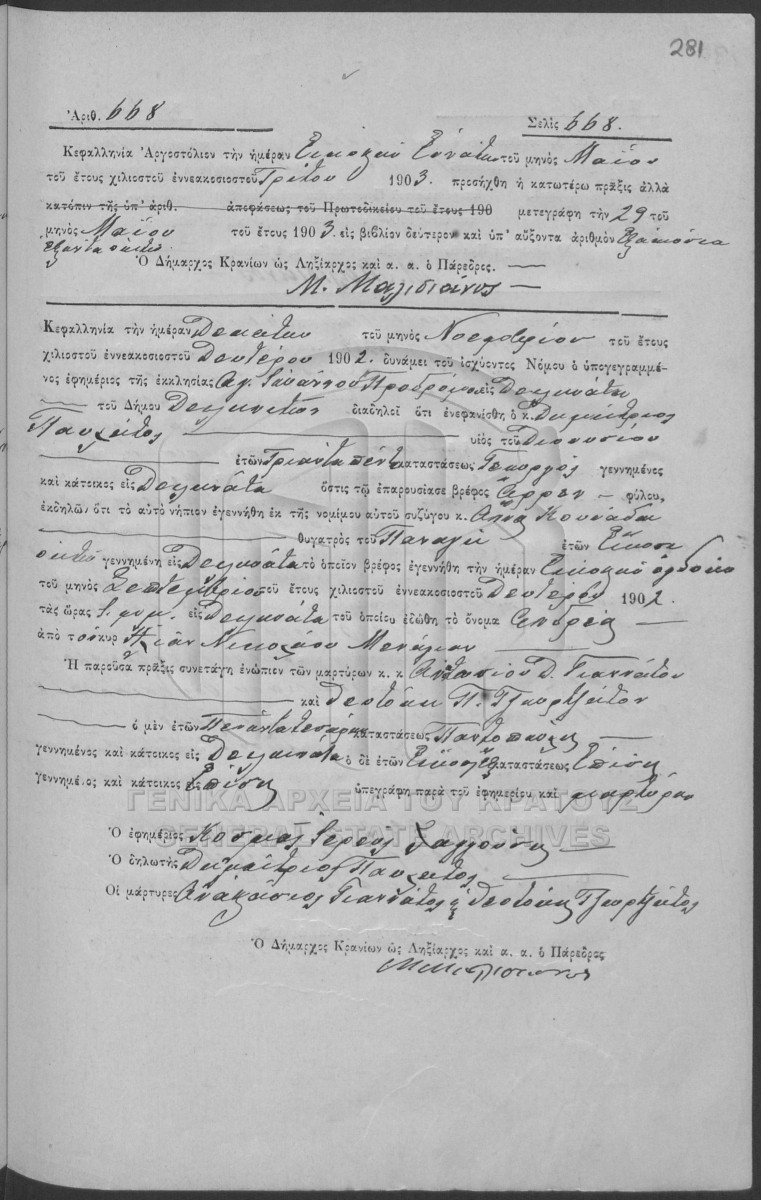 281
Ἀριθ. 668 Σελὶς 668.
Κεφαλληνία Ἀργοστόλιον τὴν ἡμέραν Εἰκοστὴν Ἐνάτην τοῦ μηνὸς Μαΐου
τοῦ ἔτους χιλιοστοῦ ἐννεακοσιοστοῦ Τρίτου 1903. προσήχθη ἡ κατωτέρω πρᾶξις ἀλλὰ
κατόπιν τῆς ὑπ' ἀριθ. ἀποφάσεως τοῦ Πρωτοδικείου τοῦ ἔτους 190 μετεγράφη τὴν 29 τοῦ
μηνὸς Μαΐου τοῦ ἔτους 1903 εἰς βιβλίον δεύτερον καὶ ὑπ' αὔξοντα ἀριθμὸν Ἑξακόσια
ἑξήντα ὀκτώ
Ὁ Δήμαρχος Κρανίων ὡς Ληξίαρχος καὶ α. α. ὁ Πάρεδρος.
Μ.
Κεφαλληνία τὴν ἡμέραν Δεκάτην τοῦ μηνὸς Νοεμβρίου τοῦ ἔτους
χιλιοστοῦ ἐννεακοσιοστοῦ Δευτέρου 1902. δυνάμει τοῦ ἰσχύοντος Νόμου ὁ ὑπογεγραμμέ-
νος ἐφημέριος τῆς ἐκκλησίας Ἁγ. Ἰωάννου Προδρόμου εἰς Δειλινάτα
τοῦ Δήμου διαδηλοῖ ὅτι ἐνεφανίσθη ὁ κ. Δημήτριος
Παυλάτος υἱὸς τοῦ Διονυσίου
ἐτῶν Τριάντα πέντε καταστάσεως Γεωργὸς γεννημένος
καὶ κάτοικος εἰς Δειλινάτα ὅστις τῷ ἐπαρουσίασε βρέφος ἄρρεν φύλου,
ἐκδηλῶν ὅτι τὸ αὐτὸ νήπιον ἐγεννήθη ἐκ τῆς νομίμου αὐτοῦ συζύγου κ. Ἄννα Κουνάδη
θυγατρὸς τοῦ Παναγῆ ἐτῶν Εἴκοσι
ὀκτὼ γεννημένη εἰς Δειλινάτα τὸ ὁποῖον βρέφος ἐγεννήθη τὴν ἡμέραν Εἰκοστὴν ὀγδόην
τοῦ μηνὸς Σεπτεμβρίου τοῦ ἔτους χιλιοστοῦ ἐννεακοσιοστοῦ Δευτέρου 1902.
τὰς ὥρας μ.μ. εἰς Δειλινάτα τοῦ ὁποίου ἐδώθη τὸ ὄνομα Ἀνδρέα
ἀπὸ τὸν κὺρ Νικολάου
Ἡ παροῦσα πρᾶξις συνετάγη ἐνώπιον τῶν μαρτύρων κ. κ. Ἀθανασίου Δ. Γιαννάτου
καὶ Θεοτόκη Π. Τζωρτζάτου
ὁ μὲν ἐτῶν καταστάσεως Παντοπώλης
γεννημένος καὶ κάτοικος εἰς Δειλινάτα ὁ δὲ ἐτῶν Εἴκοσι ἓξ καταστάσεως Ἐπίσης
γεννημένος καὶ κάτοικος εἰς Ἐπίσης ὑπεγράφη παρὰ τοῦ ἐφημερίου καὶ μαρτύρων
ΓΕΝΙΚΑ ΑΡΧΕΙΑ ΤΟΥ ΚΡΑΤΟΥΣ
GENERAL STATE ARCHIVES
Ὁ ἐφημέριος Κοσμᾶς Ἱερεὺς
Ὁ δηλωτὴς Δημήτριος Παυλάτος
Οἱ μάρτυρες Ἀθανάσιος Γιαννάτος Θεοτόκης Τζωρτζάτος
Ὁ Δήμαρχος Κρανίων ὡς Ληξίαρχος καὶ α. α. ὁ Πάρεδρος